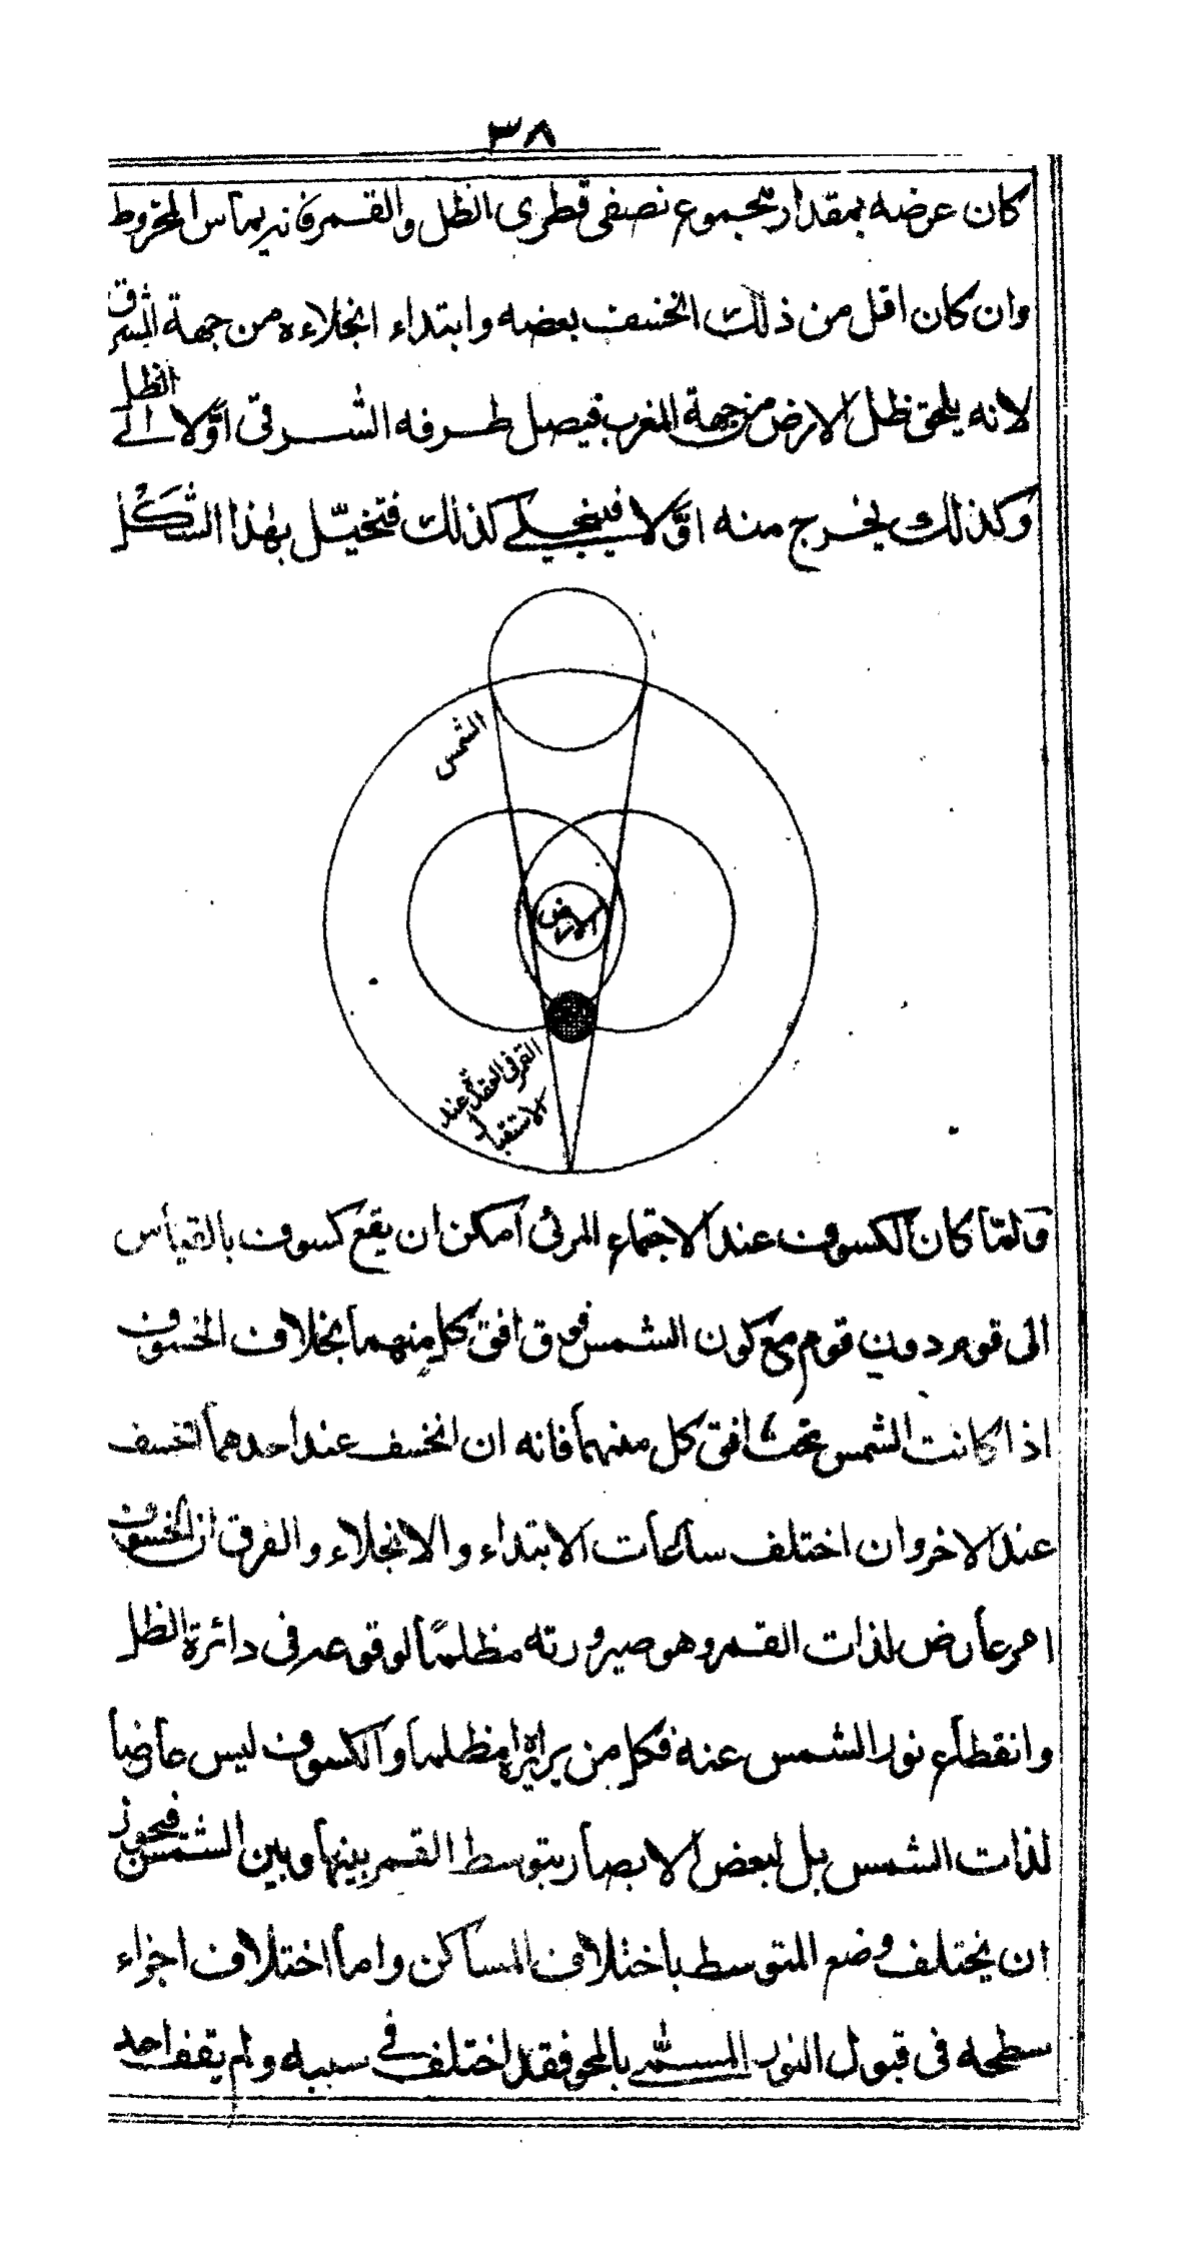 ٣٨
كان عرضه بمقدار مجموع نصفى قطرى الظل والقمر فانه يماس المخروط
وان كان اقل من ذلك انخسف بعضه وابتداء انجلاءه من جهة الشرق
لانه يلحق ظل الارض من جهة المغرب فيصل طرفه الشرقى اوّلا الى الظل
وكذلك يخرج منه اوّلا فينجلى كذلك فتخيّل بهذا الشكل
الشمس
الارض
القمر فى العقدة عند
الاستقبال
ولمّا كان الكسوف عند الاجتماع المرئى امكن ان يقع كسوف بالقياس
الى قوم دون قوم مع كون الشمس فوق افق كل منهما بخلاف الخسوف
اذا كانت الشمس تحت افق كل منهما فانه ان انخسف عند احدهما انخسف
عند الاخر وان اختلف ساعات الابتداء والانجلاء والفرق ان الخسوف
امر عارض لذات القمر وهو صيرورته مظلمًا لوقوعه فى دائرة الظل
وانقطاع نور الشمس عنه فكل من يراه يراه مظلما والكسوف ليس عارضا
لذات الشمس بل لبعض الابصار بتوسط القمر بينها وبين الشمس فيجوز
ان يختلف وضع المتوسط باختلاف المساكن واما اختلاف اجزاء
سطحه فى قبول النور المسمّى بالمحو فقد اختلف فى سببه ولم يقف احد